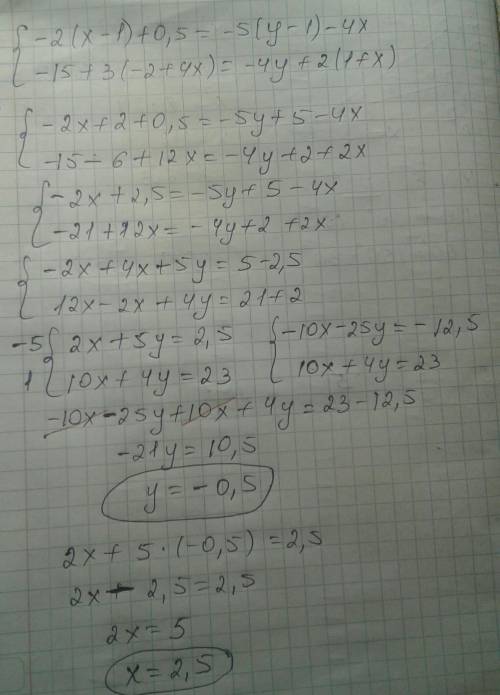 -2(x-1)+0,5=-5(y-1)-4x
-15+3(-2+4x)=-4y+2(1+x)
-2x+2+0,5=-5y+5-4x
-15-6+12x=-4y+2+2x
-2x+2,5=-5y+5-4x
-21+12x=-4y+2+2x
-2x+4x+5y=5-2,5
12x-2x+4y=21+2
-5 2x+5y=2,5 -10x-25y=-12,5
1 10x+4y=23 10x+4y=23
-10x-25y+10x+4y=23-12,5
-21y=10,5
y=-0,5
2x+5·(-0,5)=2,5
2x-2,5=2,5
2x=5
x=2,5